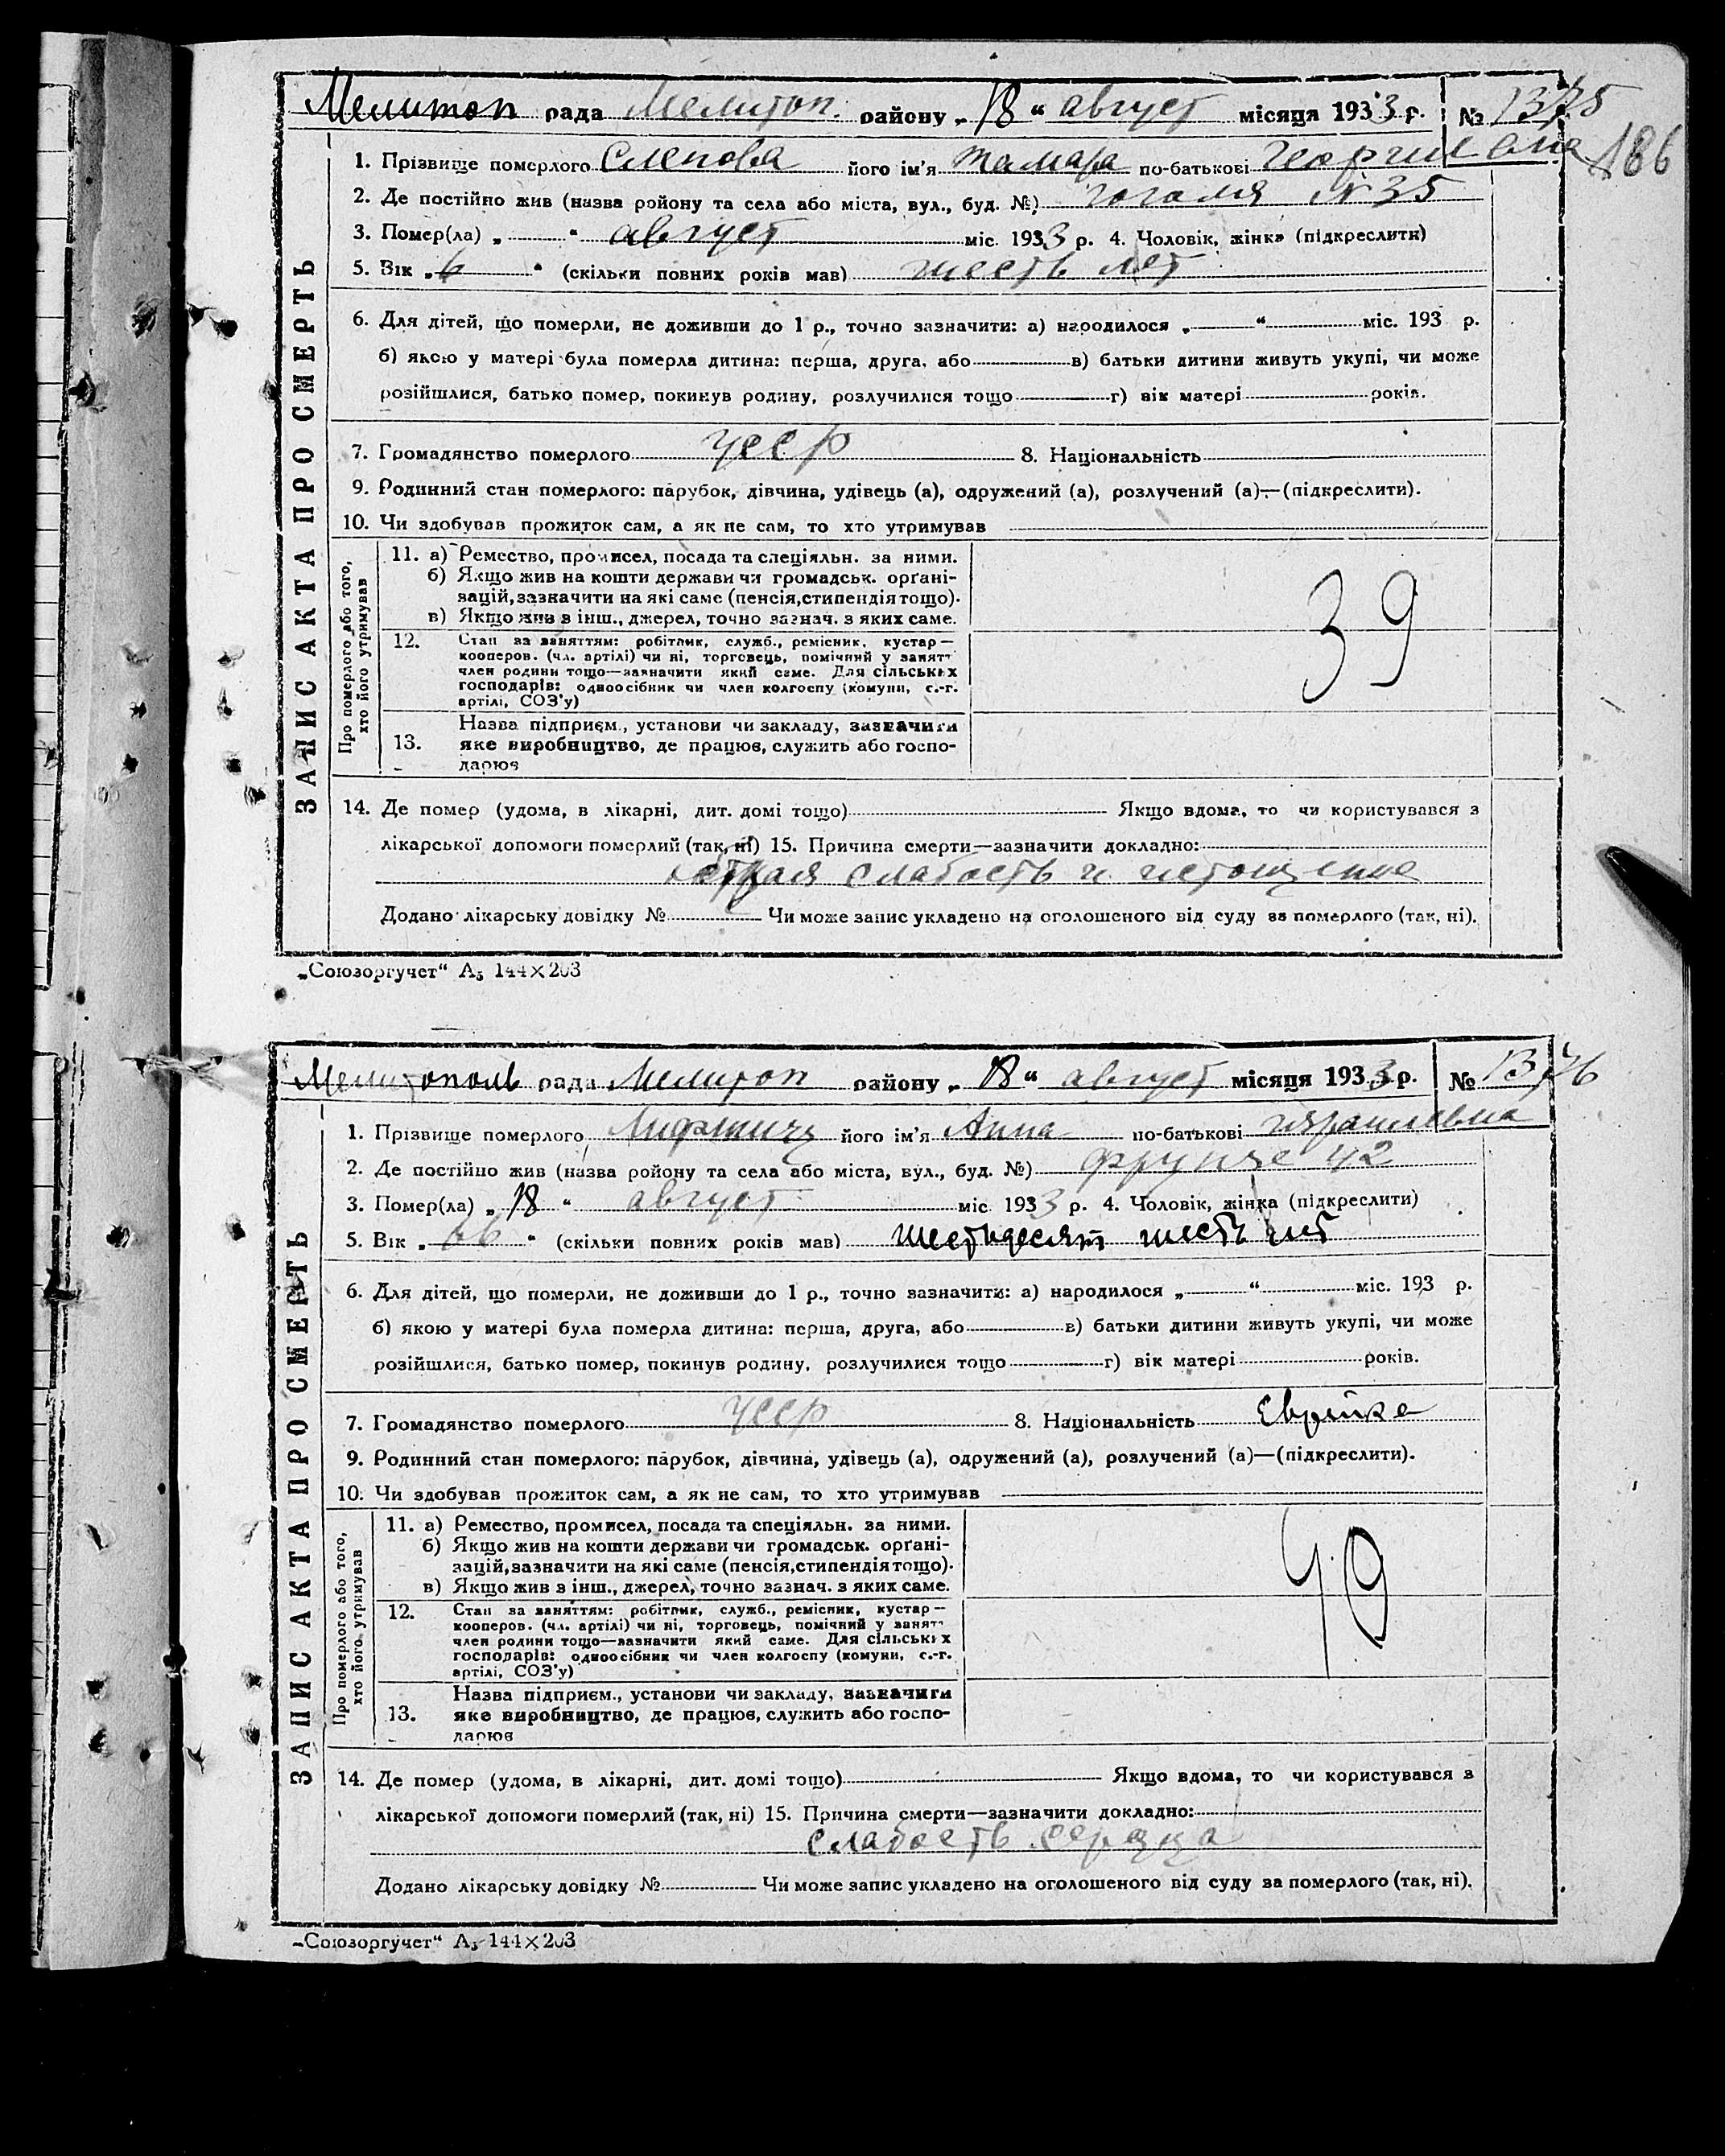 Мелитоп рада Мелитоп. району „18“ август місяця 1933 р. № 1375
186
1. Прізвище померлого Слепова його ім'я Тамара по-батькові Георгиевна
2. Де постійно жив (назва району та села або міста, вул., буд. №) гоголя № 35
3. Помер(ла) „ “ август міс. 1933 р. 4. Чоловік, жінка (підкреслити)
5. Вік „6“ (скільки повних років мав) шесть лет
6. Для дітей, що померли, не доживши до 1 р., точно зазначити: а) народилося „ “ міс. 193 р.
б) якою у матері була померла дитина: перша, друга, або в) батьки дитини живуть укупі, чи може
розійшлися, батько помер, покинув родину, розлучилися тощо г) вік матері років.
7. Громадянство померлого УССР 8. Національність
9. Родинний стан померлого: парубок, дівчина, удівець (а), одружений (а), розлучений (а)—(підкреслити).
10. Чи здобував прожиток сам, а як не сам, то хто утримував
ЗАПИС АКТА ПРО СМЕРТЬ
Про померлого або того, хто його утримував
11. а) Ремество, промисел, посада та спеціяльн. за ними.
б) Якщо жив на кошти держави чи громадськ. орґані-
зацій, зазначити на які саме (пенсія, стипендія тощо).
в) Якщо жив з інш., джерел, точно зазнач. з яких саме.
39
12. Стан за заняттям: робітник, служб., ремісник, кустар—
кооперов. (чл. артілі) чи ні, торговець, помічний у занятт
член родини тощо—зазначити який саме. Для сільських
господарів: одноосібник чи член колгоспу (комуни, с.-г.
артілі, СОЗ'у)
13. Назва підприєм., установи чи закладу, зазначити
яке виробництво, де працює, служить або госпо-
дарює
14. Де помер (удома, в лікарні, дит. домі тощо) Якщо вдома, то чи користувався з
лікарської допомоги померлий (так, ні) 15. Причина смерти—зазначити докладно:
слабость и истощение
Додано лікарську довідку № Чи може запис укладено на оголошеного від суду за померлого (так, ні).
„Союзоргучет“ А5 144×203
Мелитополь рада Мелитоп району „18“ август місяця 1933 р. № 1376
1. Прізвище померлого його ім'я Анна по-батькові
2. Де постійно жив (назва району та села або міста, вул., буд. №) фрунзе 42
3. Помер(ла) „18“ август міс. 1933 р. 4. Чоловік, жінка (підкреслити)
5. Вік „66“ (скільки повних років мав) шестьдесят шесть лет
6. Для дітей, що померли, не доживши до 1 р., точно зазначити: а) народилося „ “ міс. 193 р.
б) якою у матері була померла дитина: перша, друга, або в) батьки дитини живуть укупі, чи може
розійшлися, батько помер, покинув родину, розлучилися тощо г) вік матері років.
7. Громадянство померлого УССР 8. Національність Еврейка
9. Родинний стан померлого: парубок, дівчина, удівець (а), одружений (а), розлучений (а)—(підкреслити).
10. Чи здобував прожиток сам, а як не сам, то хто утримував
ЗАПИС АКТА ПРО СМЕРТЬ
Про померлого або того, хто його утримував
11. а) Ремество, промисел, посада та спеціяльн. за ними.
б) Якщо жив на кошти держави чи громадськ. орґані-
зацій, зазначити на які саме (пенсія, стипендія тощо).
в) Якщо жив з інш., джерел, точно зазнач. з яких саме.
40
12. Стан за заняттям: робітник, служб., ремісник, кустар—
кооперов. (чл. артілі) чи ні, торговець, помічний у занятт
член родини тощо—зазначити який саме. Для сільських
господарів: одноосібник чи член колгоспу (комуни, с.-г.
артілі, СОЗ'у)
13. Назва підприєм., установи чи закладу, зазначити
яке виробництво, де працює, служить або госпо-
дарює
14. Де помер (удома, в лікарні, дит. домі тощо) Якщо вдома, то чи користувався з
лікарської допомоги померлий (так, ні) 15. Причина смерти—зазначити докладно:
слабость сердца
Додано лікарську довідку № Чи може запис укладено на оголошеного від суду за померлого (так, ні).
„Союзоргучет“ А5 144×203